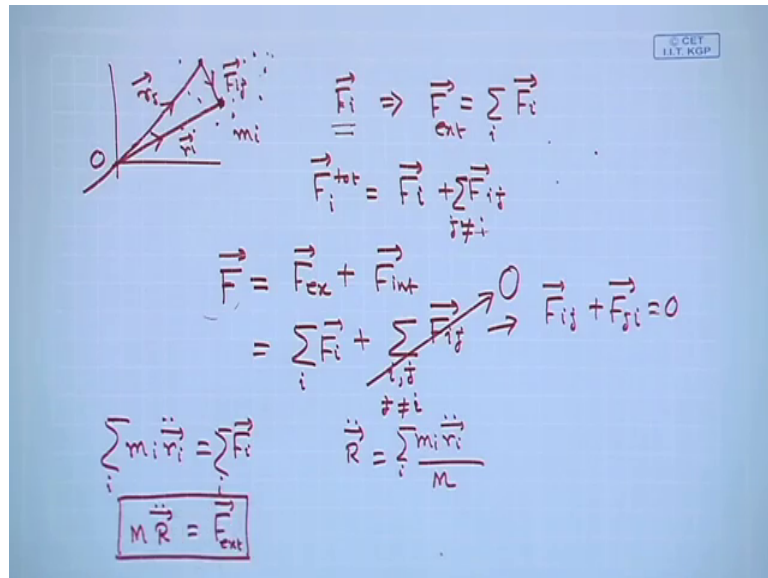 © CET
I.I.T. KGP
r⃗ⱼ F⃗ᵢⱼ
O r⃗ᵢ mᵢ
F⃗ᵢ ⇒ F⃗ext = Σᵢ F⃗ᵢ
F⃗ᵢᵗᵒᵗ = F⃗ᵢ + Σ_{j≠i} F⃗ᵢⱼ
F⃗ = F⃗ex + F⃗int
= Σᵢ F⃗ᵢ + Σ_{i,j j≠i} F⃗ᵢⱼ → 0 F⃗ᵢⱼ + F⃗ⱼᵢ = 0
Σᵢ mᵢ r̈⃗ᵢ = Σᵢ F⃗ᵢ R̈⃗ = Σᵢ mᵢ r̈⃗ᵢ / M
M R̈⃗ = F⃗ext